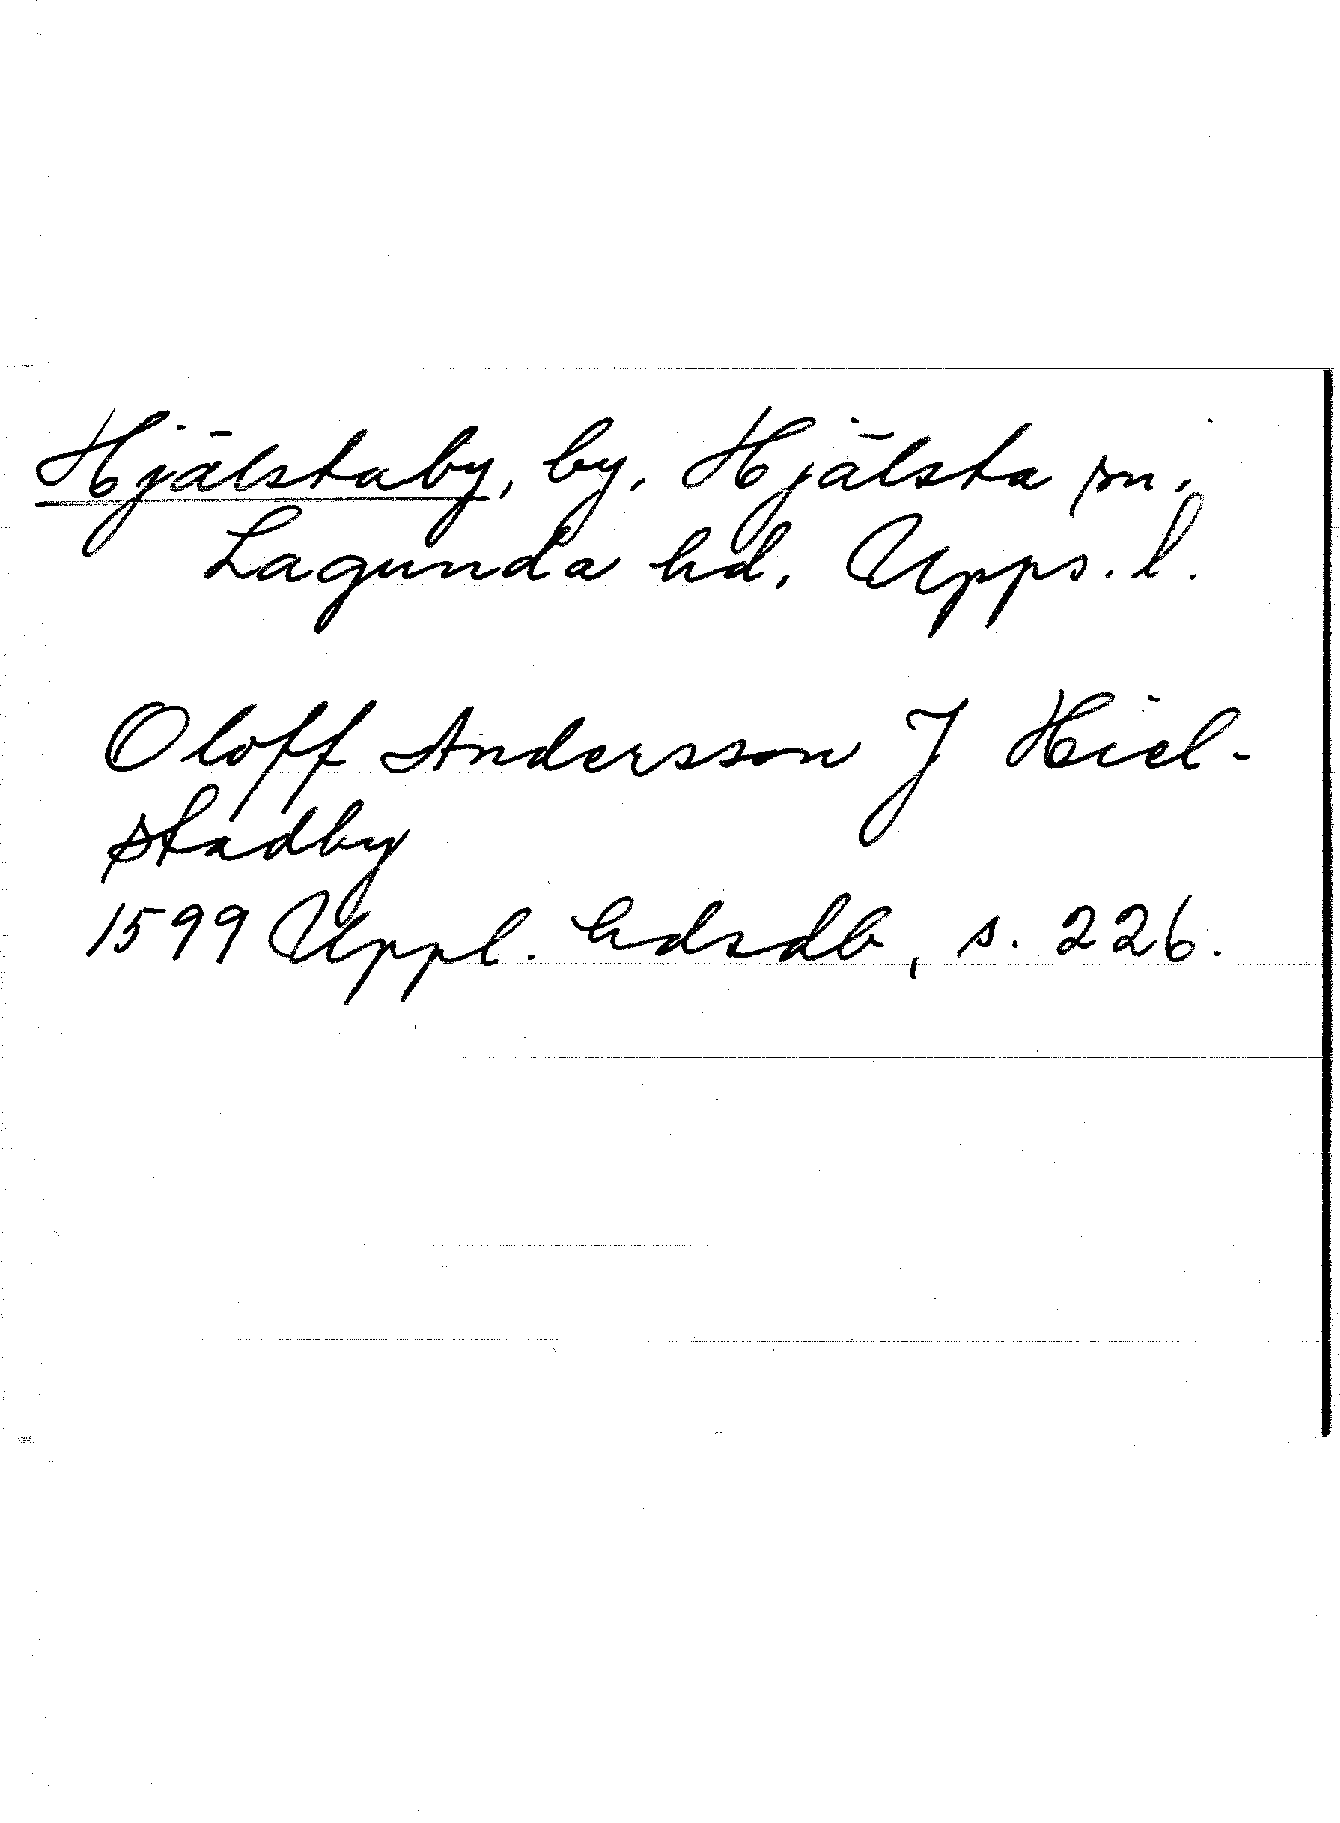 Hjälstaby, by, Hjälsta sn,
Lagunda hd, Upps. l.
Oloff Andersson J Hiel-
stadby
1599 Uppl. hdsdb, s. 226.